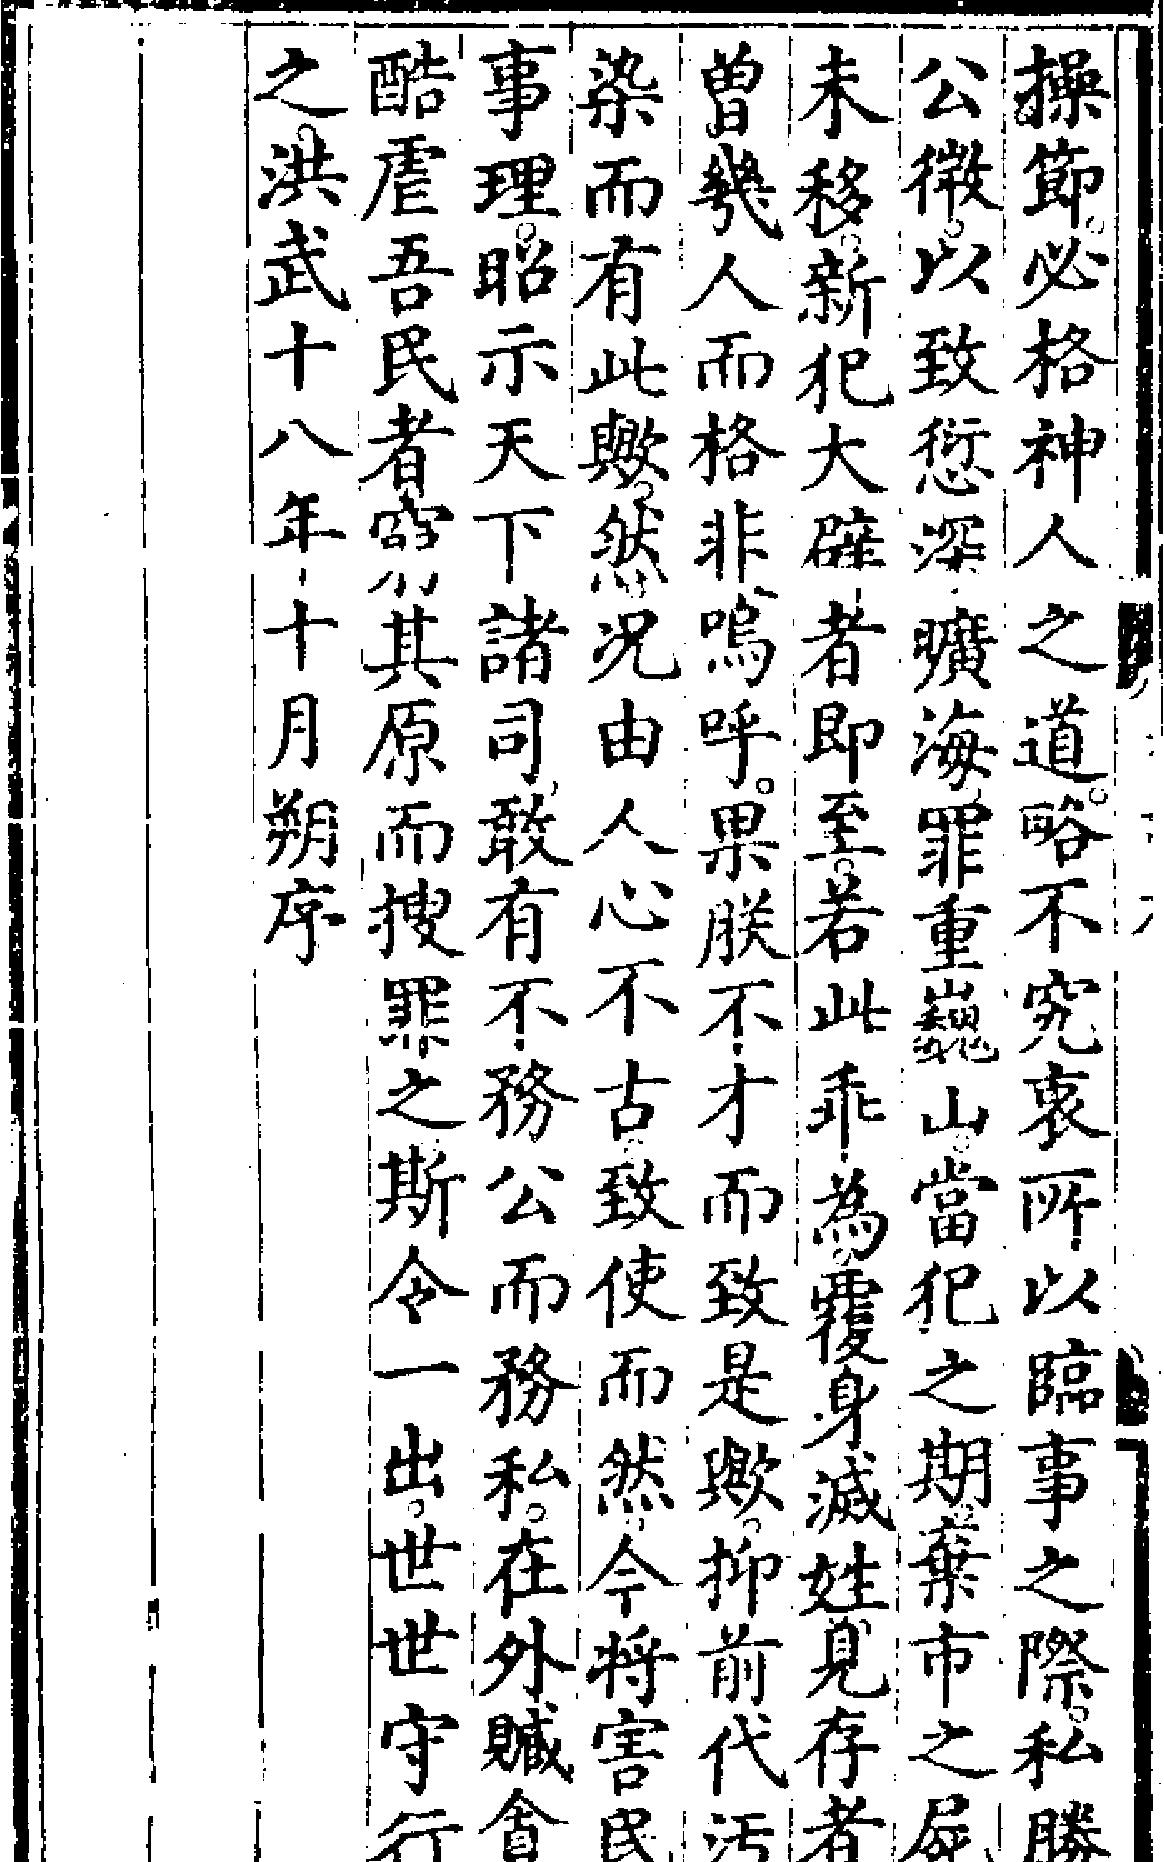 操節。必格神人之道。略不究衷所以臨事之際。私勝
公微。以致愆深曠海。罪重巍山。當犯之期。棄市之屍
未移。新犯大辟者即至。若此乖為。覆身滅姓。見存者
曾幾人而格非。嗚呼。果朕不才而致是歟。抑前代汚
染而有此歟。然況由人心不古。致使而然。今將害民
事理。昭示天下諸司。敢有不務公而務私。在外贓貪
酷虐吾民者。窮其原而搜罪之。斯令一出。世世守行
之。洪武十八年十月朔序